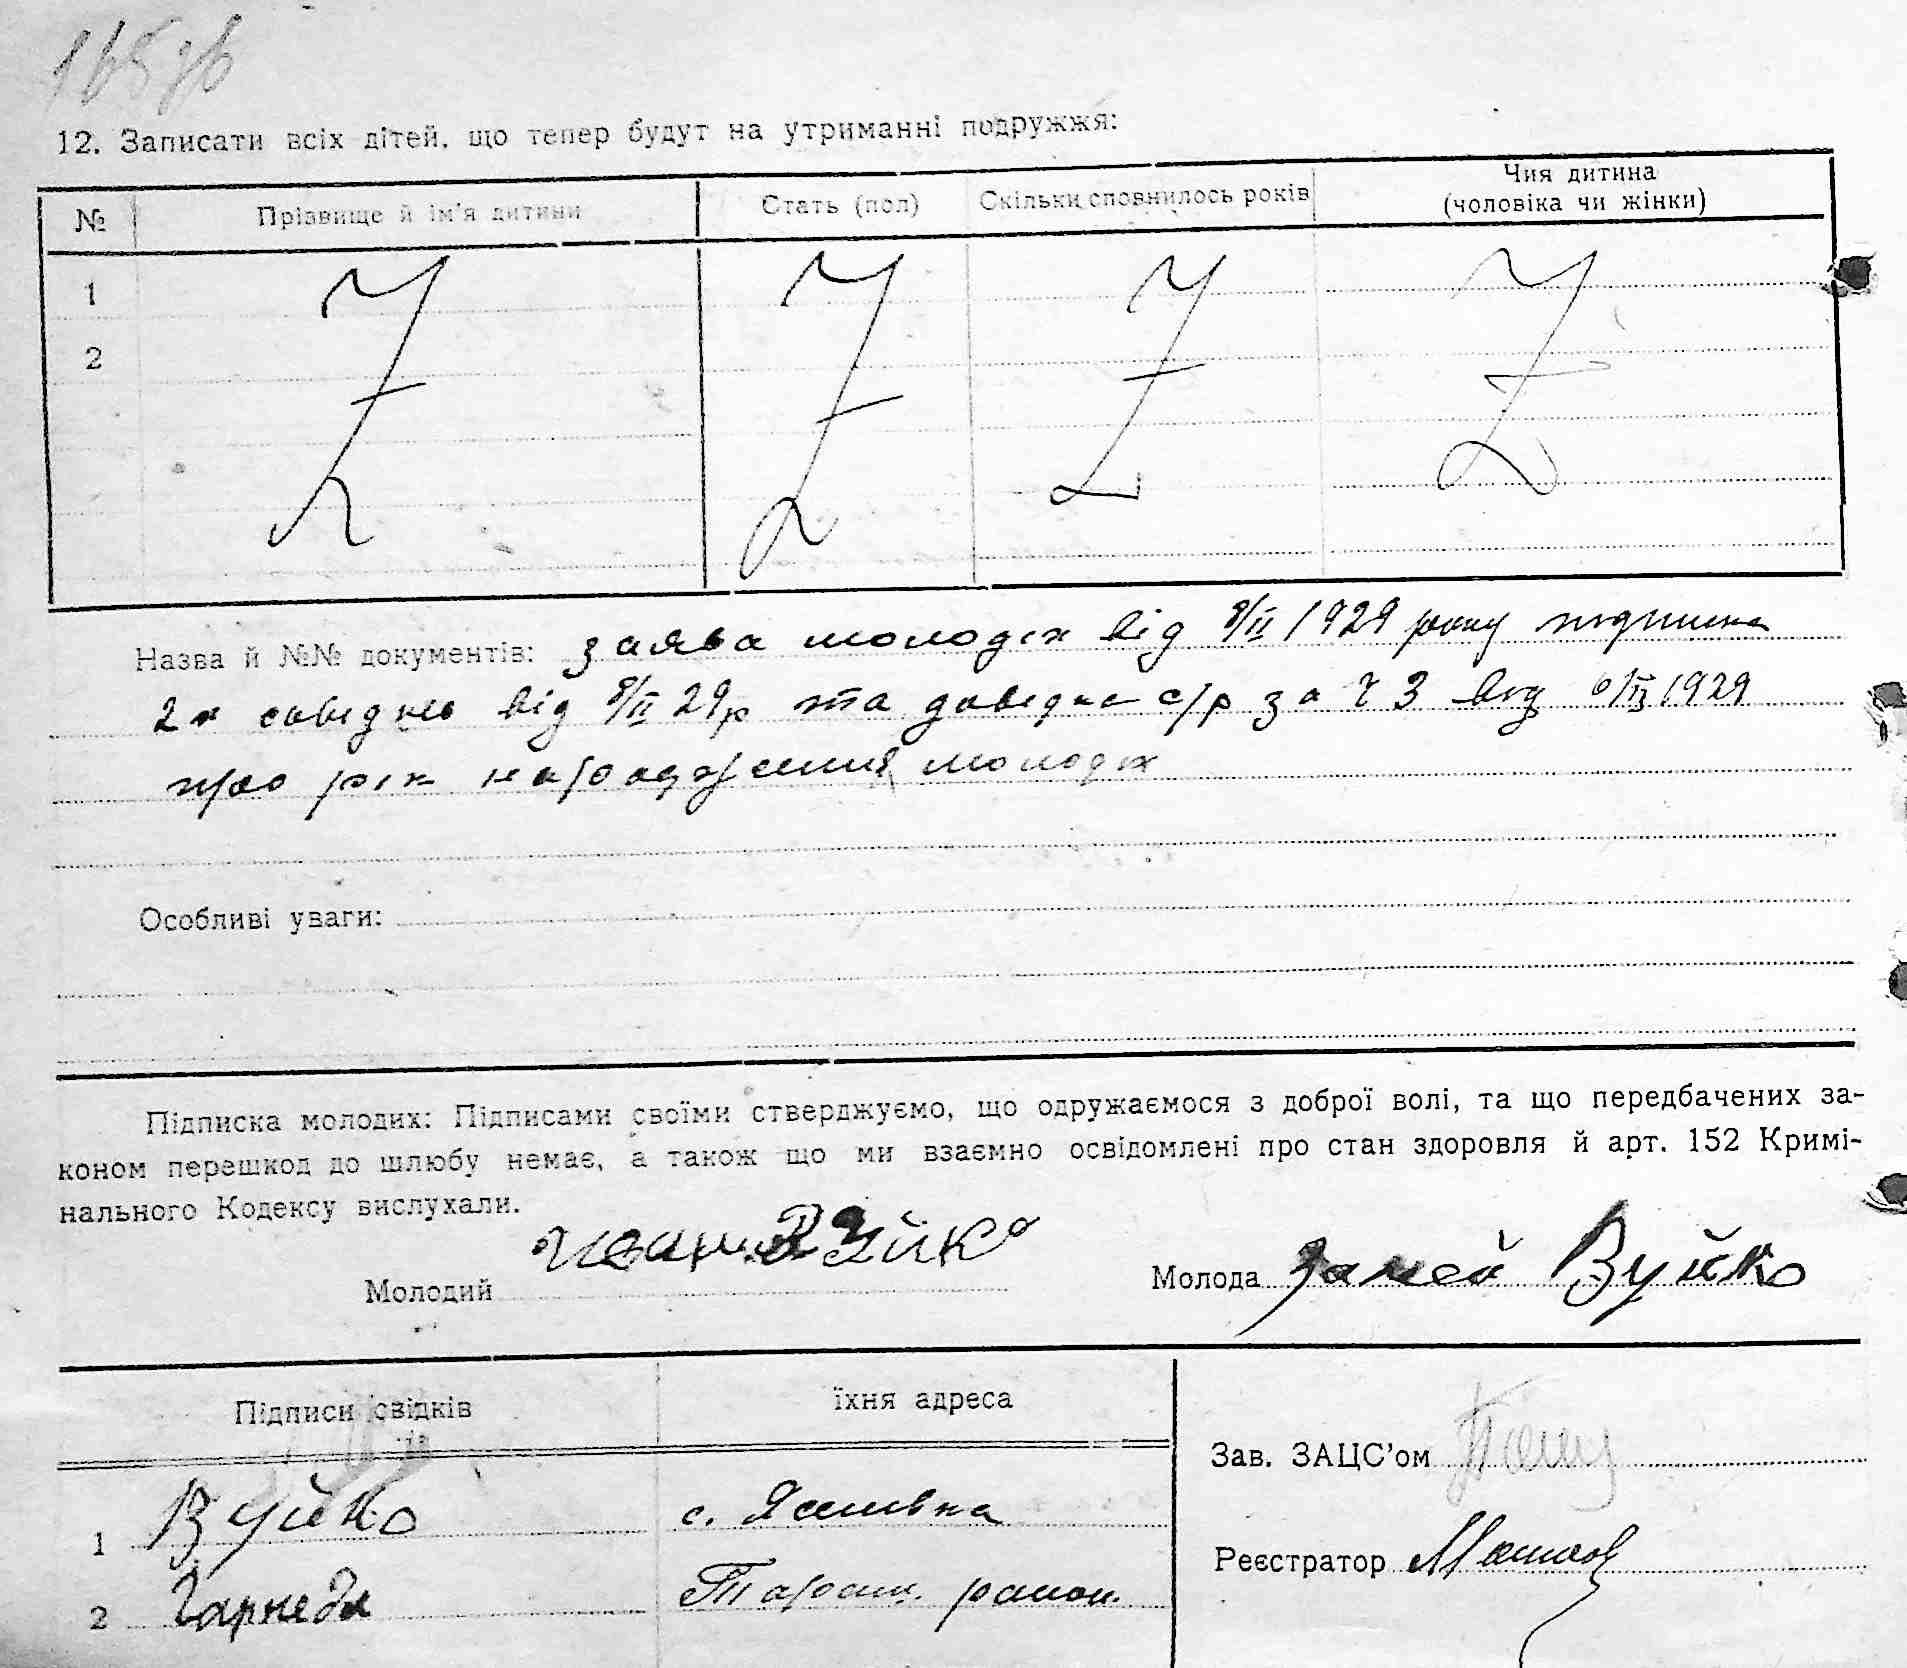 12. Записати всіх дітей, що тепер будут на утриманні подружжя:
№ Прізвище й ім'я дитини Стать (пол) Скільки сповнилось років Чия дитина (чоловіка чи жінки)
1
2
Назва й №№ документів: заява молодих від 8/II 1929 року підписка
2х свідків від 8/II 29р та довідка с/р за ч 3 від 6/II 1929
про рік народження молодих
Особливі уваги:
Підписка молодих: Підписами своїми стверджуємо, що одружаємося з доброї волі, та що передбачених за-
коном перешкод до шлюбу немає, а також що ми взаємно освідомлені про стан здоровля й арт. 152 Кримі-
нального Кодексу вислухали.
Молодий Иван Вуйко Молода За неї Вуйко
Підписи свідків їхня адреса
Зав. ЗАЦС'ом
1 Вуйко с.
Реєстратор
2 Таращ. район.